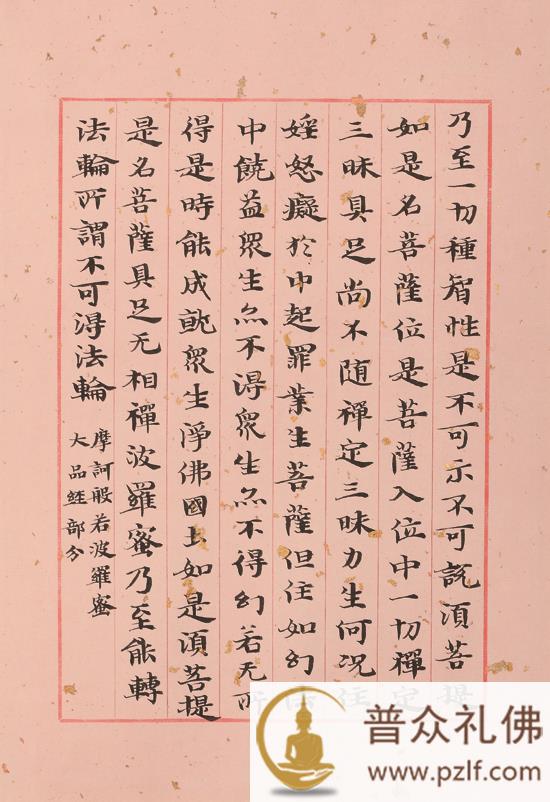 乃至一切種智性是不可示不可說須菩提
如是名菩薩位是菩薩入位中一切禪定
三昧具足尚不随禪定三昧力生何況住
婬怒癡於中起罪業生菩薩但住如幻法
中饒益眾生亦不得眾生亦不得幻若无所
得是時能成就眾生淨佛國土如是須菩提
是名菩薩具足无相禪波羅蜜乃至能轉
法輪所謂不可得法輪
摩訶般若波羅蜜
大品經部分
普众礼佛
www.pzlf.com